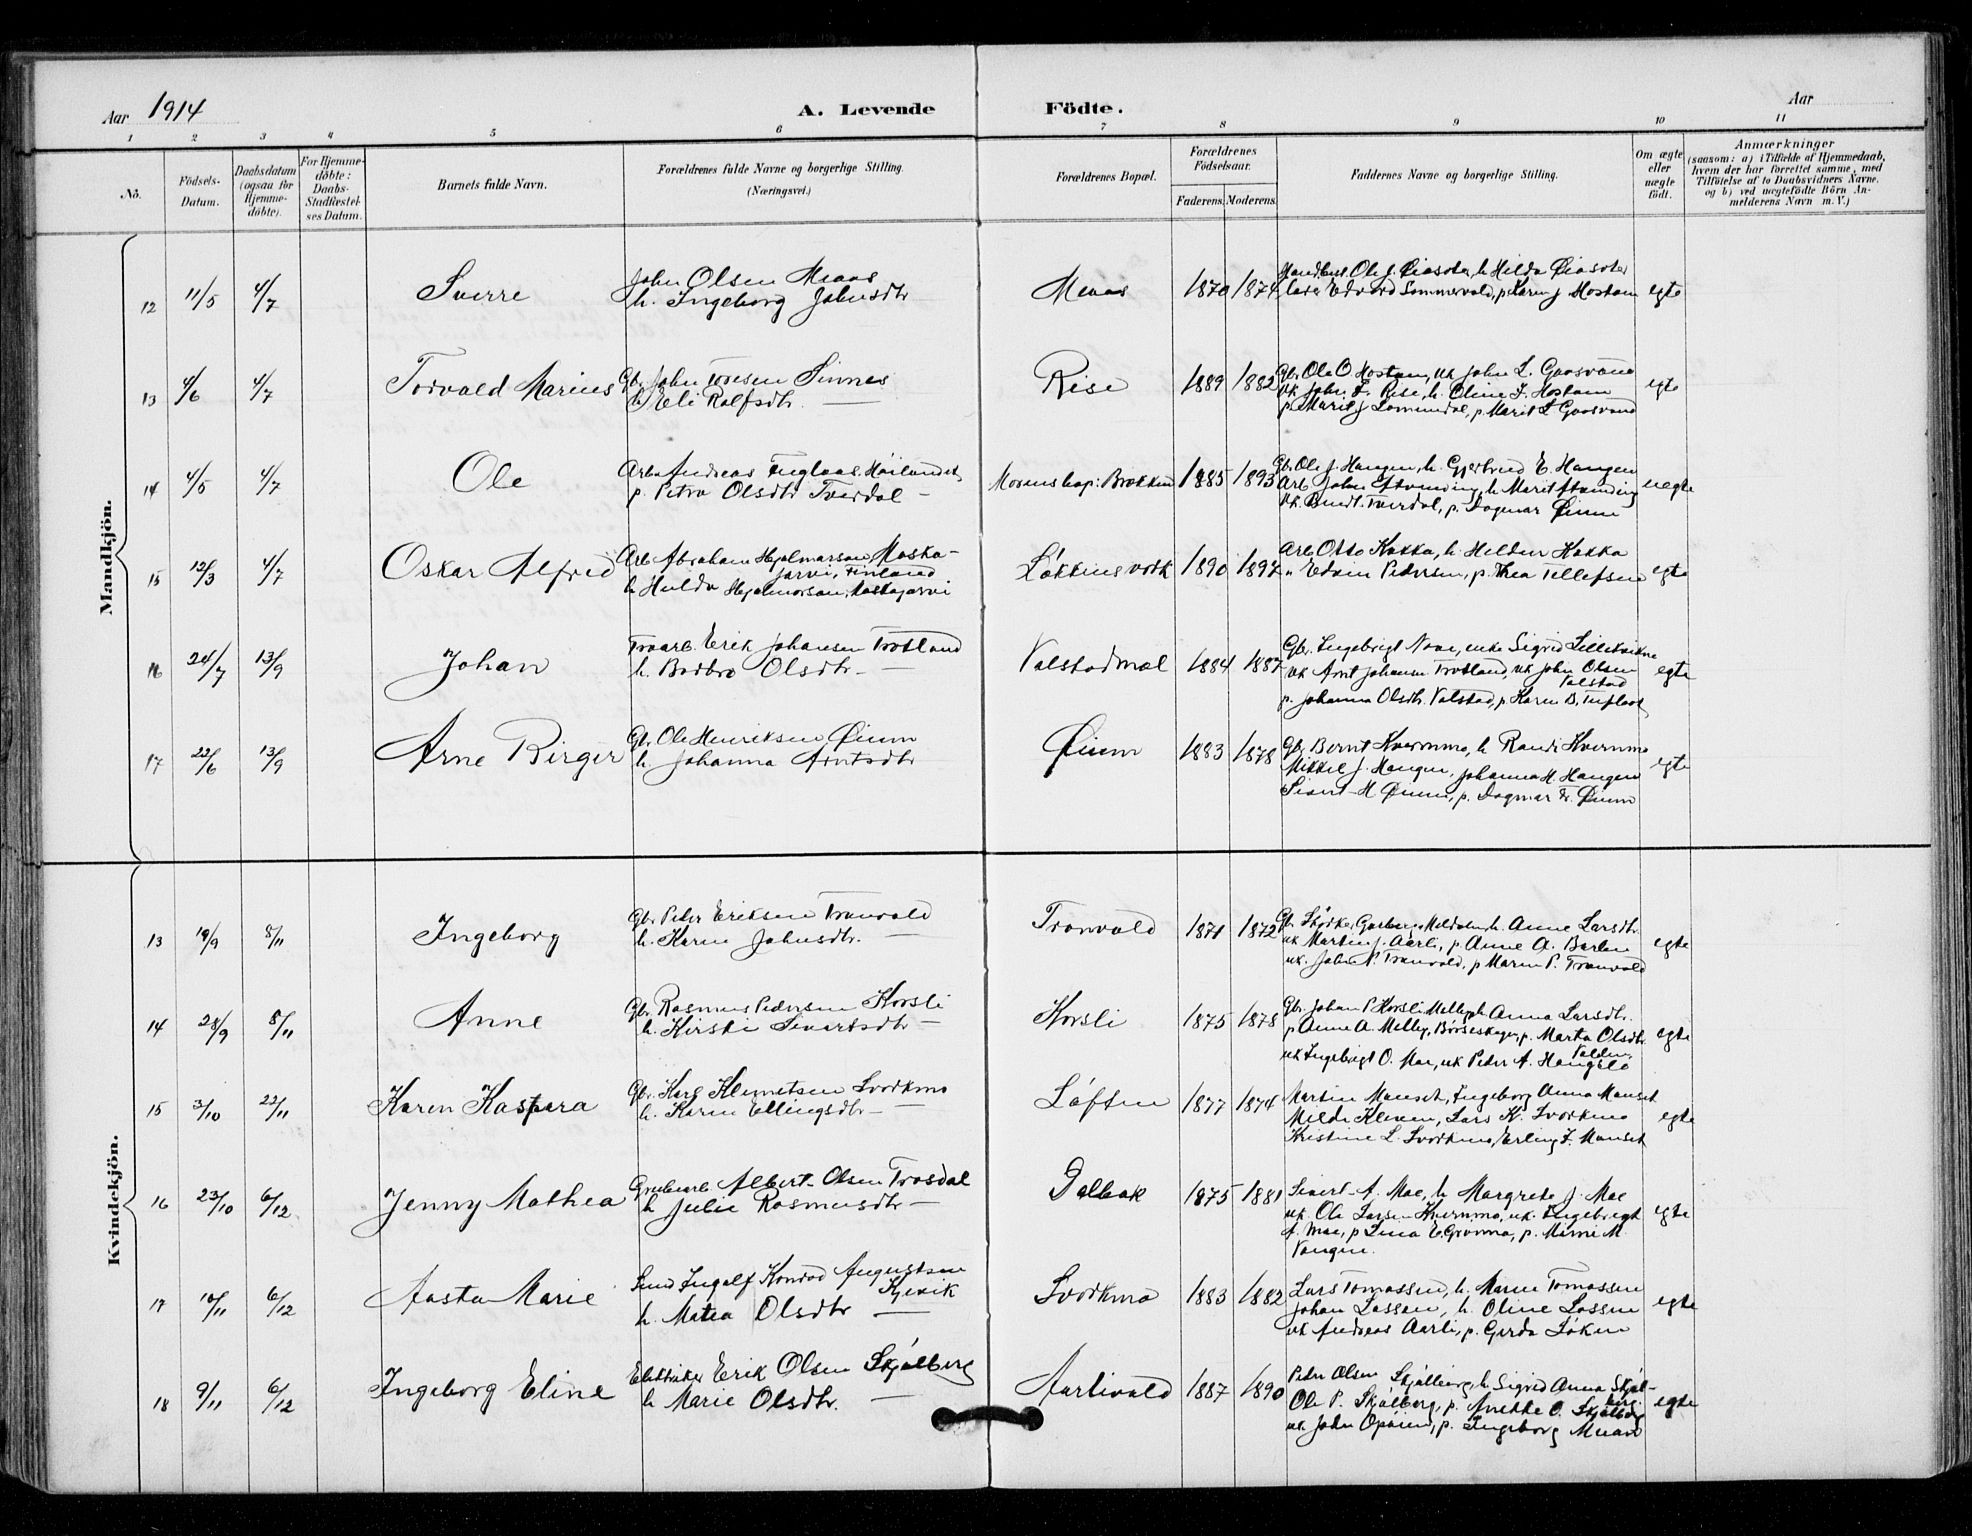 Aar 1914
A. Levende Födte.
Aar
1 2 3 4 5 6 7 8 9 10 11
No.
Födsels-Datum.
Daabsdatum (ogsaa for Hjemme-döbte).
For Hjemme-döbte: Daabs-Stadfæstel-ses Datum.
Barnets fulde Navn.
Forældrenes fulde Navne og borgerlige Stilling. (Næringsvei.)
Forældrenes Bopæl.
Forældrenes Födselsaar.
Faderens. Moderens.
Faddernes Navne og borgerlige Stilling.
Om ægte eller uægte födt.
Anmærkninger
(saasom: a) i Tilfælde af Hjemmedaab,
hvem der har forrettet samme, med
Tilföielse af to Daabsvidners Navne.
og b) ved uægtefödte Börn An-
melderens Navn m. V.)
Mandkjön.
12 11/5 4/7 Sverre
John Olsen Meaas
h. Ingeborg Johnsdtr
Meaas 1870 1874
Ole J. Øiasæter, h. Hilda Øiasæter
Edvard Sommervold, p. Karen J. Hostam
egte
13 4/6 4/7 Torvald Marius
Gbr. John Toresen Sinnes
h. Eli Rolfsdtr. —
Rise 1889 1882
Gbr. Ole O Hostam, uk John L. Gaasvand
uk John L. Rise, h. Oline J. Hostam
p. Marit J Lomundal, p. Marit L Gaasvand
egte
14 4/5 4/7 Ole
Arb. Andreas Fuglaas Høilandet
p. Petra Olsdtr Tverdal —
Morens bop: Brokken 1885 1893
Gbr. Ole J. Haugen, h. Gjertrud E. Haugen
Arb. John Estvending, h. Marit Estvending
uk. Bendt. Tverdal, p. Dagmar Øium
uegte
15 12/3 4/7 Oskar Alfred
Arb. Abraham Hjalmarsan Maska-
jarvi, Finland
h Hulda Hjalmarsan, Maskajarvi
Løkkens verk 1890 1897
Arb. Otto Kakka, h. Heldur Kakka
" Edvin Pedersen, p. Thea Tellefsen
egte
16 24/7 13/9 Johan
Erik Johansen Trotland
h. Bodbro Olsdtr —
Valstadmæl 1884 1887
Gbr. Ingebrigt Nave, enke Sigrid Lillekvikne
uk Arnt Johansen Trotland, uk John Olsen
Valstad
p. Johanna Olsdtr. Valstad, p Karen B.
egte
17 22/6 13/9 Arne Birger
Gbr. Ole Henriksen Øium
h. Johanna Arntsdtr
Øium 1883 1878
Gbr Bernt Kvernmo, h Randi Kvernmo
Mikkel J. Haugen, Johanna H. Haugen
Sivert H Øium, p. Dagmar Tr. Øium
egte
Kvindekjön.
13 19/9 8/11 Ingeborg
Gbr Peder Eriksen Tranvold
h. Karen Johnsdtr.
Tronvold 1871 1872
Garberg, Meldalen h. Anne Larsdtr.
uk Martin J. Aarli, p. Anne A. Barlien
uk. John P. Tranvold, p Maren P. Tranvold
egte
14 28/9 8/11 Anne
Gbr. Rasmus Pedersen Korsli
h. Kirsti Sivertsdtr —
Korsli 1875 1878
Gbr. Johan P. Korsli Melby h Anna Larsdtr.
p. Anne A. Melby, Børseskogn, p. Marta Olsdtr.
Valden
uk Ingebrigt O. Moe, uk Peder A. Haugslo
egte
15 3/10 22/11 Karen Kaspara
Gbr. Karl Klemetsen Svorkmo
h. Karen Ellingsdtr —
Løften 1877 1874
Martin Manset, Ingeborg Anna Manset
Milda Kleven, Lars K. Svorkmo
Kristine L. Svorkmo, Erling J. Manset
egte
16 23/10 6/12 Jenny Mathea
Grubearb Albert Olsen Trosdal
h Julie Rasmusdtr —
Dalbak 1875 1881
Sivert A. Moe, h Margrete J. Moe
uk. Ole Larsen Kvernmo, uk. Ingebrigt
A. Moe, p Lina E. Grønmo, p. Minni M.
Vangen.
egte
17 14/11 6/12 Aasta Marie
Smed Ingolf Konrad Augustsen
Kjevik
h. Matea Olsdtr —
Svorkmo 1883 1882
Lars Tomassen, h. Maren Tomassen
Johan Lassen, h. Oline Lassen
uk Andreas Aarli, p. Gerda Løken
egte
18 9/11 6/12 Ingeborg Eline
Elektriker Erik Olsen Skjølberg
h Marie Olsdtr. —
Aarlivold 1887 1890
Peder Olsen Skjølberg, h. Sigrid Anna Skjøl-
berg
Ole P. Skjølberg, p. Anekke O. Skjølberg
uk. John Opøien, p. Ingeborg Meaas
egte